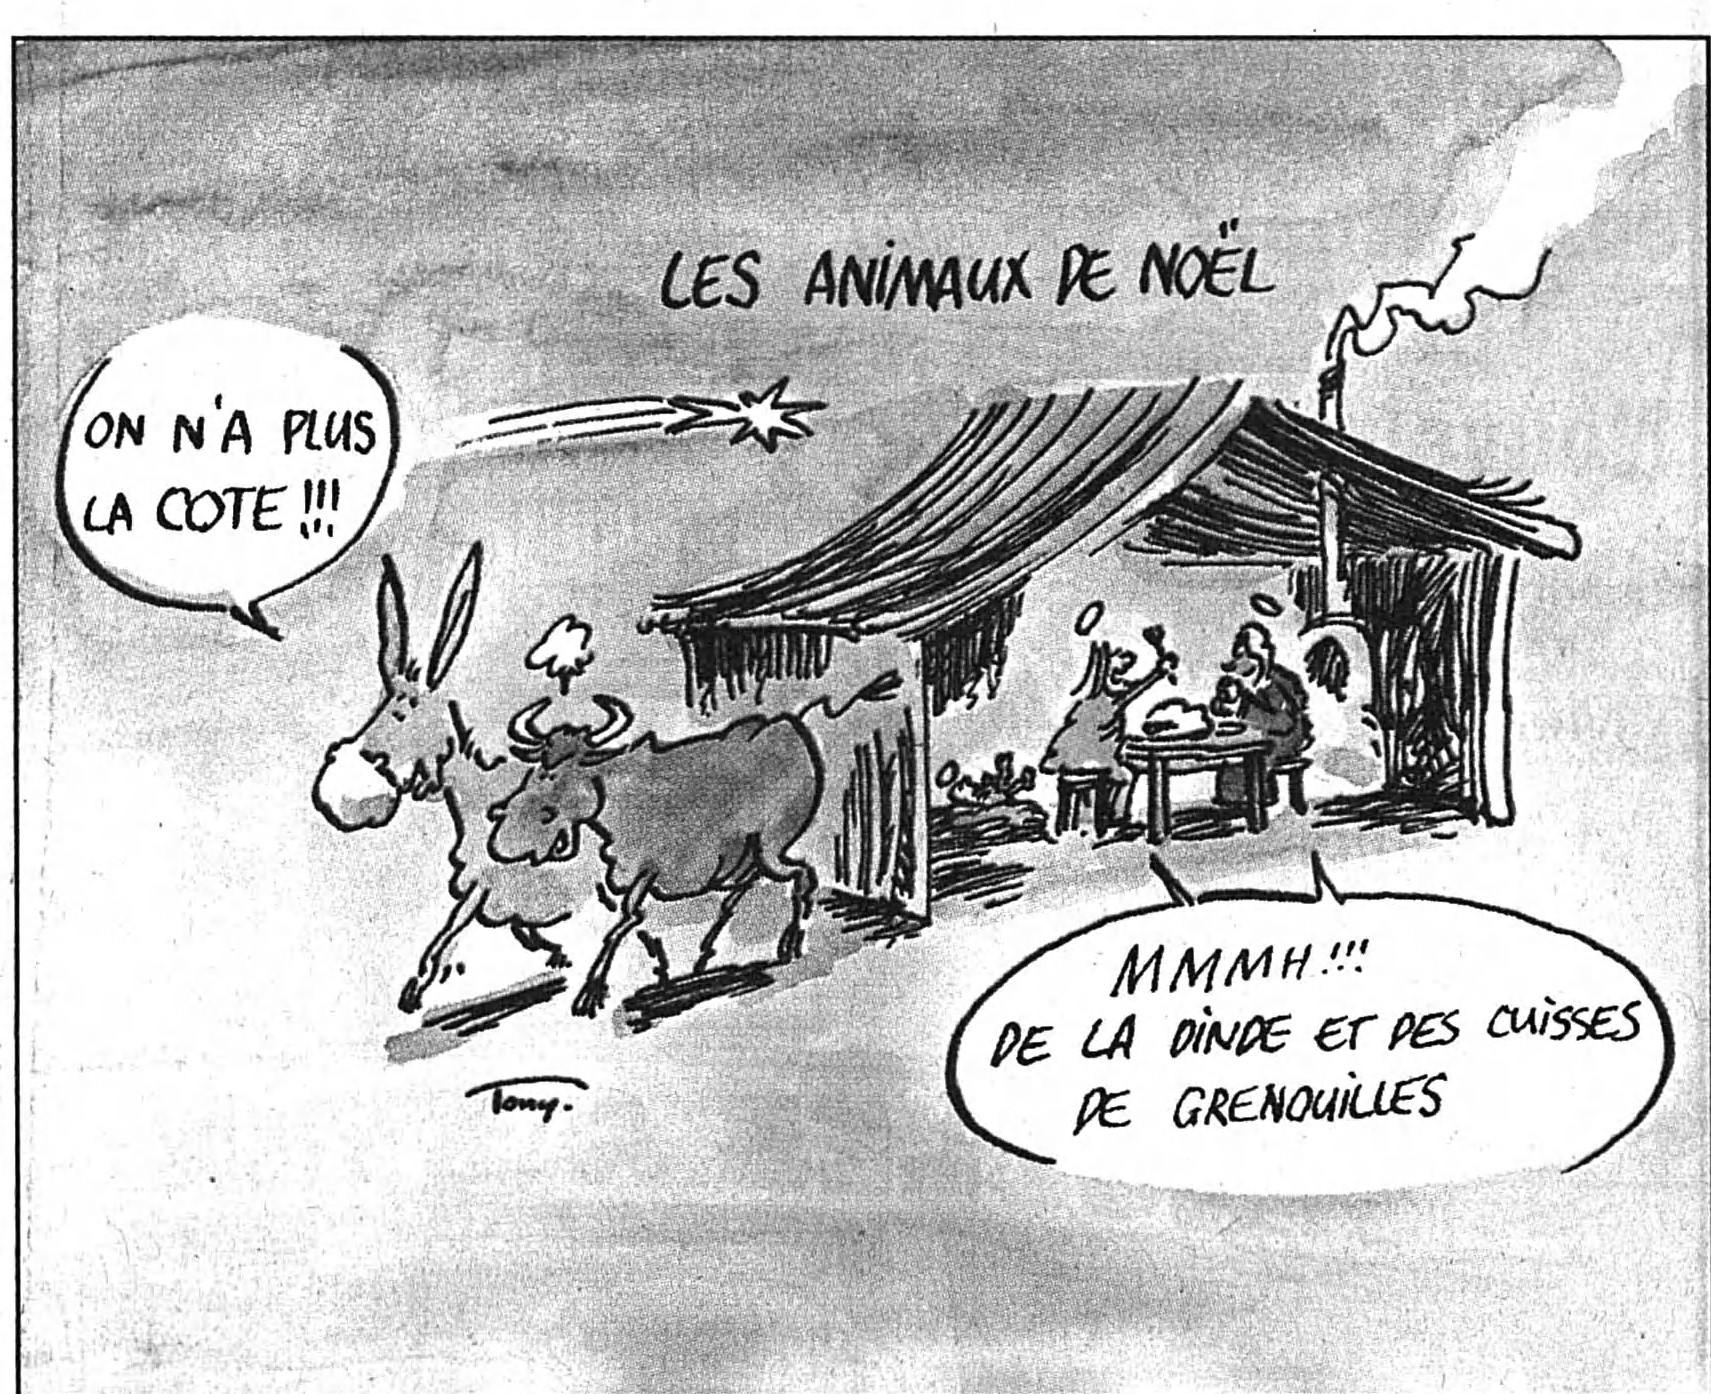 LES ANIMAUX DE NOËL
ON N'A PLUS
LA COTE !!!
MMMH !!!
DE LA DINDE ET DES CUISSES
DE GRENOUILLES
Tony.